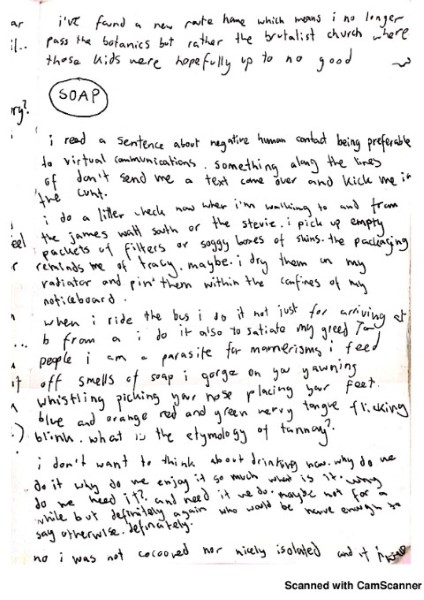 i've found a new route home which means i no longer
pass the botanics but rather the brutalist church where
those kids were hopefully up to no good
SOAP
i read a sentence about negative human contact being preferable
to virtual communications. something along the lines
of don't send me a text come over and kick me in
the cunt.
i do a litter check now when i'm walking to and from
the james watt south or the stevie. i pick up empty
packets of filters or soggy boxes of skins. the packaging
reminds me of tracy. maybe. i dry them on my
radiator and pin them within the confines of my
noticeboard.
when i ride the bus i do it not just for arriving at
b from a i do it also to satiate my greed for
people i am a parasite for mannerisms i feed
off smells of soap i gorge on you yawning
whistling picking your nose placing your feet.
blue and orange red and green nervy tongue flicking
blink. what is the etymology of tannoy?.
i don't want to think about drinking now. why do we
do it why do we enjoy it so much what is it. why
do we need it?. and need it we do. maybe not for a
while but definitely again who would be naive enough to
say otherwise. definately.
no i was not cocooned nor nicely isolated and it
Scanned with CamScanner